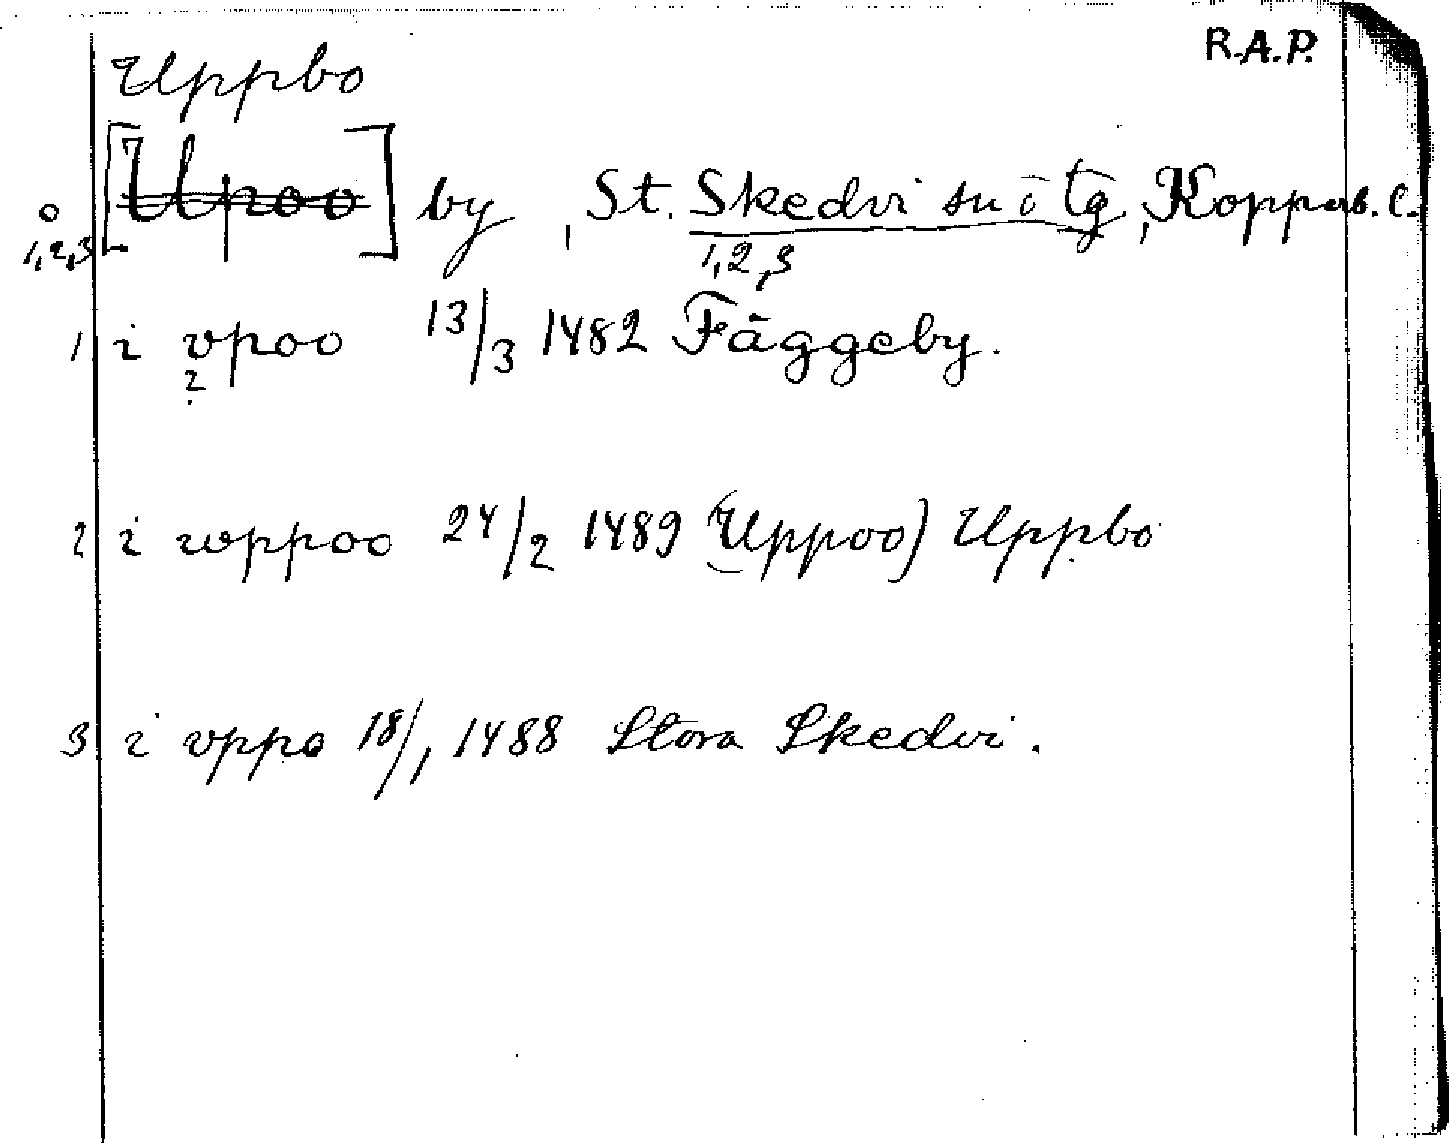 R.A.P.
Uppbo
o [Upoo] by, St. Skedvi sn o tg, Kopparb. l.
1,2,3 1,2,3
1 i vpoo 13/3 1482 Fäggeby.
2
2 i wppoo 24/2 1489 (Uppoo) Uppbo
3 i vppo 18/1 1488 Stora Skedvi.